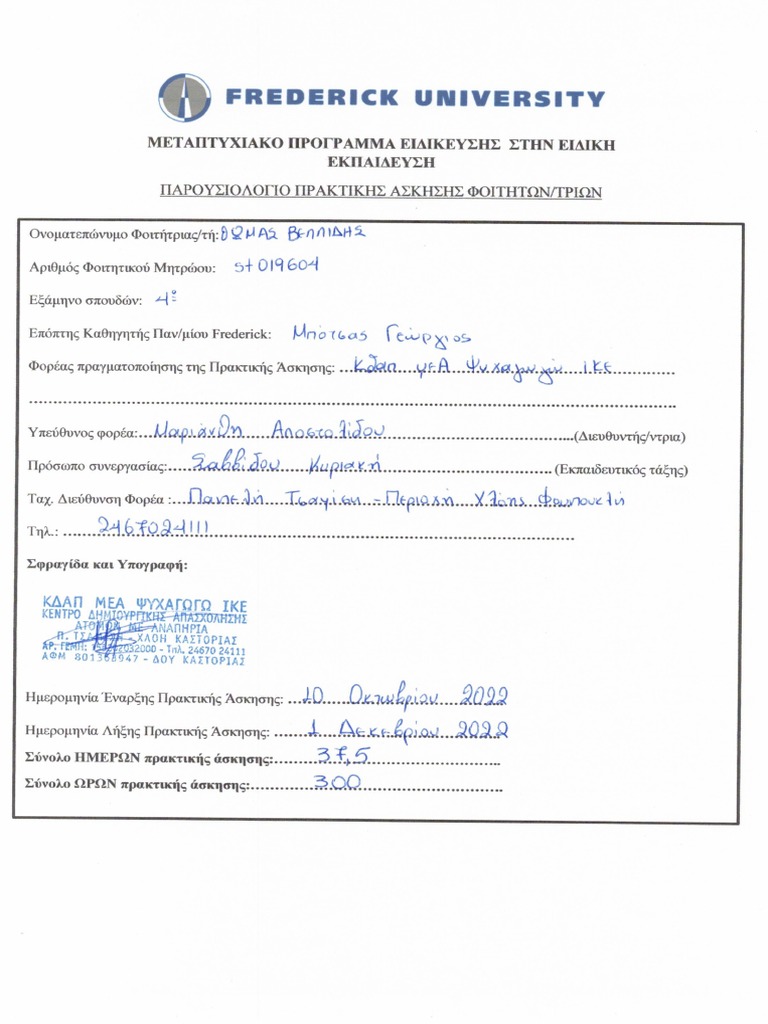 FREDERICK UNIVERSITY
ΜΕΤΑΠΤΥΧΙΑΚΟ ΠΡΟΓΡΑΜΜΑ ΕΙΔΙΚΕΥΣΗΣ ΣΤΗΝ ΕΙΔΙΚΗ
ΕΚΠΑΙΔΕΥΣΗ
ΠΑΡΟΥΣΙΟΛΟΓΙΟ ΠΡΑΚΤΙΚΗΣ ΑΣΚΗΣΗΣ ΦΟΙΤΗΤΩΝ/ΤΡΙΩΝ
Ονοματεπώνυμο Φοιτήτριας/τή: ΘΩΜΑΣ ΒΕΛΛΙΔΗΣ
Αριθμός Φοιτητικού Μητρώου: st019604
Εξάμηνο σπουδών: 4°
Επόπτης Καθηγητής Παν/μίου Frederick: Μπότσας Γεώργιος
Φορέας πραγματοποίησης της Πρακτικής Άσκησης: Κδαπ μεΑ Ψυχαγωγώ ΙΚΕ
Υπεύθυνος φορέα: Μαριάνθη Αποστολίδου (Διευθυντής/ντρια)
Πρόσωπο συνεργασίας: Σαββίδου Κυριακή (Εκπαιδευτικός τάξης)
Ταχ. Διεύθυνση Φορέα : Παντελή Τσαμίση - Περιοχή Χλόης
Τηλ.: 2467024111
Σφραγίδα και Υπογραφή:
ΚΔΑΠ ΜΕΑ ΨΥΧΑΓΩΓΩ ΙΚΕ
ΚΕΝΤΡΟ ΔΗΜΙΟΥΡΓΙΚΗΣ ΑΠΑΣΧΟΛΗΣΗΣ
ΑΤΟΜΩΝ ΜΕ ΑΝΑΠΗΡΙΑ
- ΧΛΟΗ ΚΑΣΤΟΡΙΑΣ
ΑΡ. ΓΕΜΗ: - Τηλ. 24670 24111
ΑΦΜ 801368947 - ΔΟΥ ΚΑΣΤΟΡΙΑΣ
Ημερομηνία Έναρξης Πρακτικής Άσκησης: 10 Οκτωβρίου 2022
Ημερομηνία Λήξης Πρακτικής Άσκησης: 1 Δεκεβρίου 2022
Σύνολο ΗΜΕΡΩΝ πρακτικής άσκησης: 37,5
Σύνολο ΩΡΩΝ πρακτικής άσκησης: 300